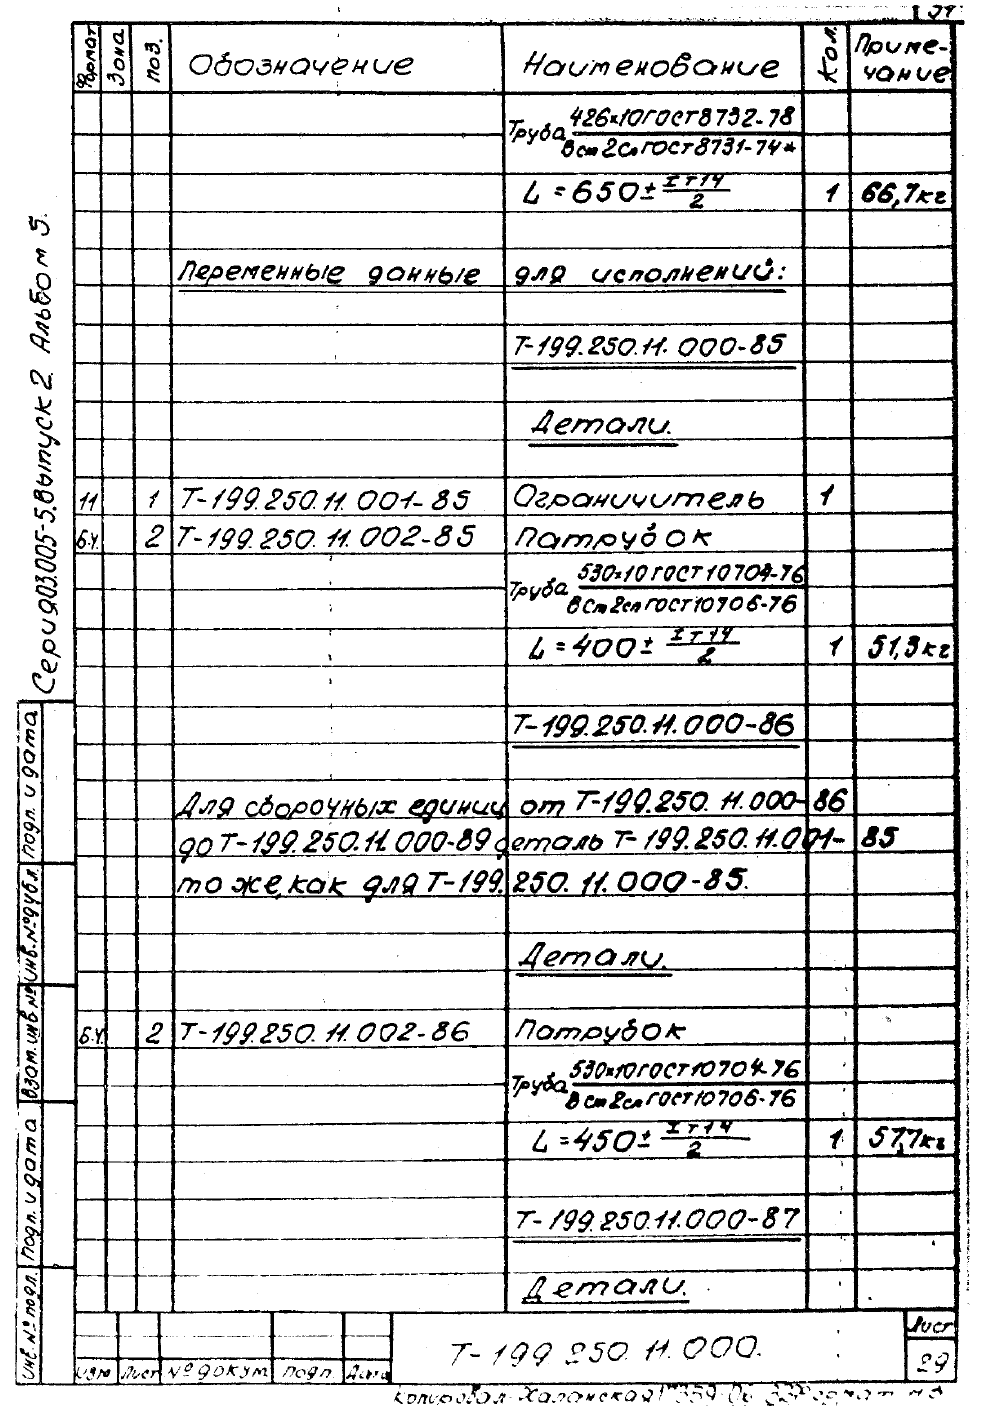 Формат Зона Поз. Обозначение Наименование Кол. Приме-
чание
Труба 426×10 ГОСТ 8732-78
В ст 2сп ГОСТ 8731-74*
L = 650 ± IT14/2 1 66,7кг
Переменные данные для исполнений:
Т-199.250.11.000-85
Детали.
11 1 Т-199.250.11.001-85 Ограничитель 1
Б.Ч. 2 Т-199.250.11.002-85 Патрубок
Труба 530×10 ГОСТ 10704-76
В Ст 2сп ГОСТ 10706-76
L = 400 ± IT14/2 1 51,3кг
Т-199.250.11.000-86
Для сборочных единиц от Т-199.250.11.000-86
до Т-199.250.11.000-89 деталь Т-199.250.11.001-85
то же, как для Т-199.250.11.000-85.
Детали.
Б.Ч. 2 Т-199.250.11.002-86 Патрубок
Труба 530×10 ГОСТ 10704-76
В ст 2сп ГОСТ 10706-76
L = 450 ± IT14/2 1 57,7кг
Т-199.250.11.000-87
Детали.
Серия 03.005-5. Выпуск 2. Альбом 5.
Подп. и дата
Инв. № дубл.
Взам. инв. №
Подп. и дата
Инв. № подл.
Изм Лист № докум. Подп. Дата
Т-199.250.11.000.
Лист
29
Копировал-Халанская Формат